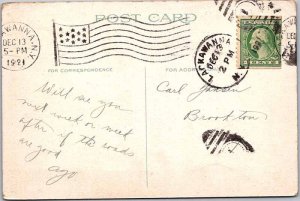 POST CARD
LACKAWANNA, N.Y.
DEC 13
5-PM
1921
LACKAWANNA
DEC 13
2 PM
N.
FOR CORRESPONDENCE
FOR ADDRESS
1 CENT 1
Will see you
next week or week
after if the roads
are good
Carl
Brockton